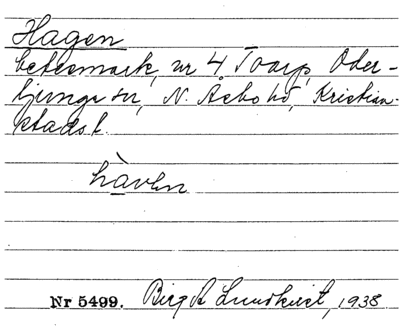 Hagen
betesmark, nr 4, Toarp, Oder-
ljunga sn, N. Åsbo hd, Kristian-
stads l.
hàvhn
Nr 5499. Birgit Lundkvist, 1938